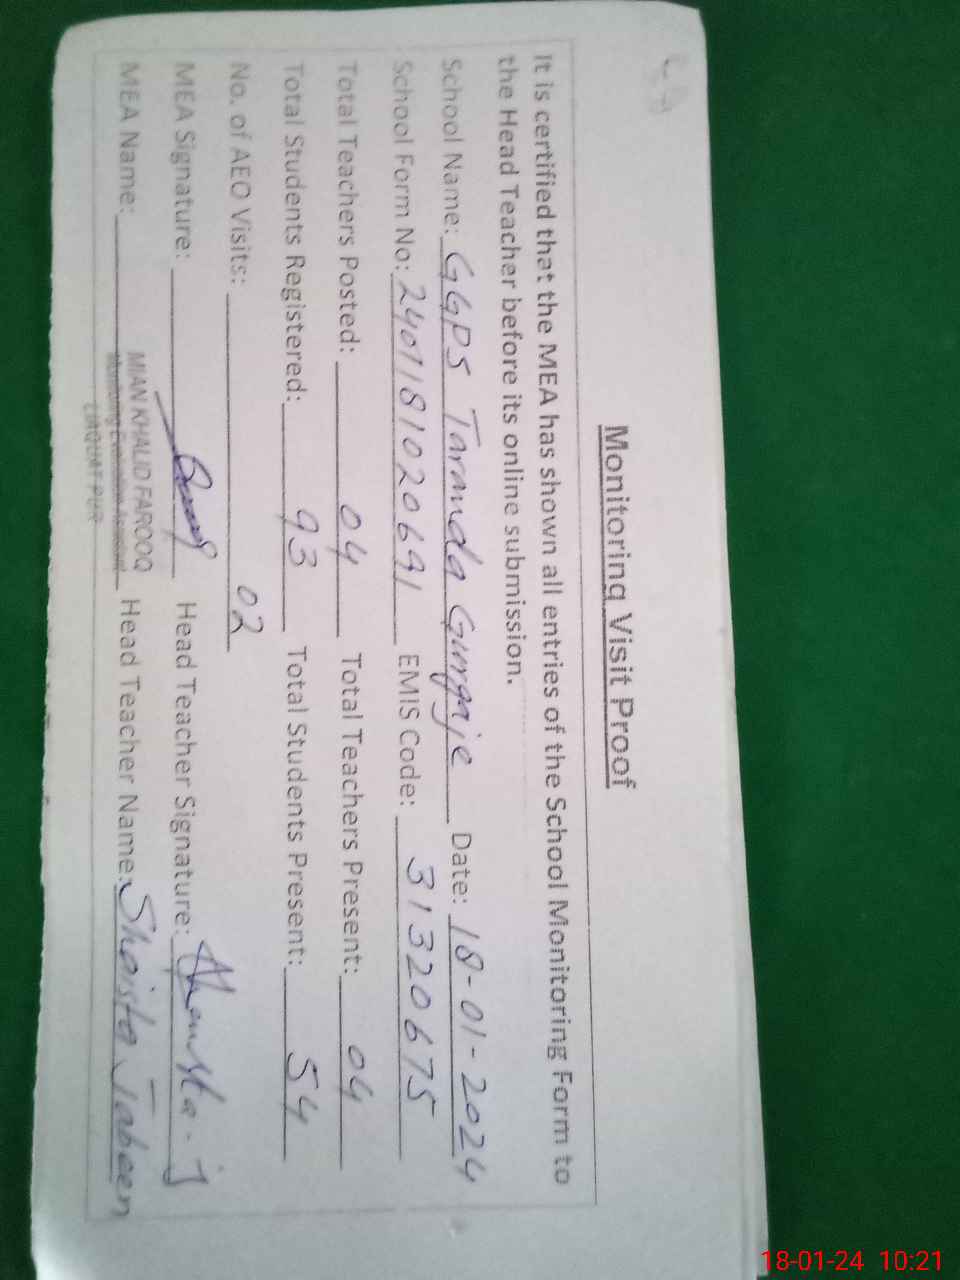 Monitoring Visit Proof
It is certified that the MEA has shown all entries of the School Monitoring Form to
the Head Teacher before its online submission.
School Name: GGPS Taranda Gurgaje Date: 18-01-2024
School Form No: 2401181020691 EMIS Code: 31320675
Total Teachers Posted: 04 Total Teachers Present: 04
Total Students Registered: 93 Total Students Present: 54
No. of AEO Visits: 02
MEA Signature: Head Teacher Signature:
MEA Name: MIAN KHALID FAROOQ Head Teacher Name: Shaista Jabeen
Monitoring Evaluation Assistant
LIAQUAT PUR
18-01-24 10:21